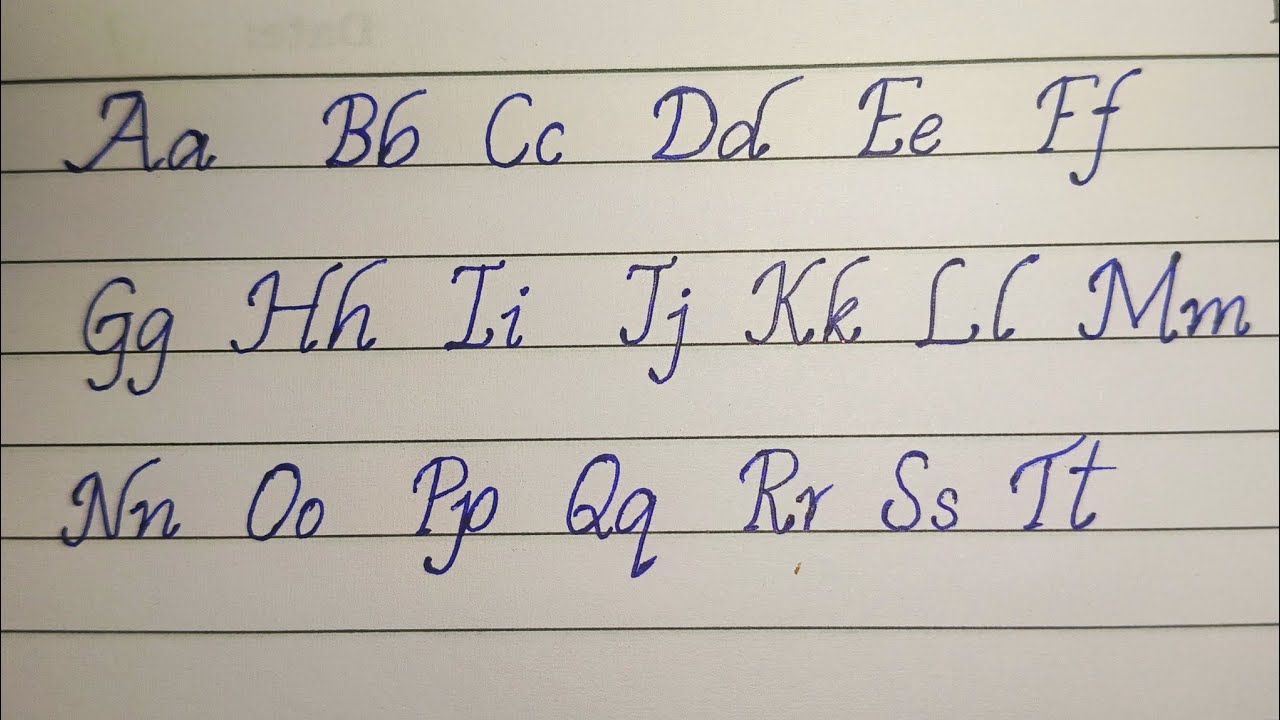 Aa Bb Cc Dd Ee Ff
Gg Hh Ii Jj Kk Ll Mm
Nn Oo Pp Qq Rr Ss Tt